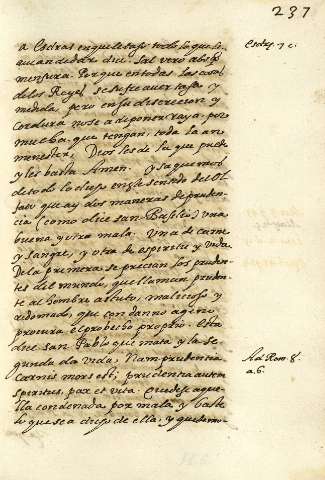 237
a Esdras en que le tasso todo lo que se
auia de dar, dice. Sal vero absq̃
mensura. Porque en todas las cosas
de los Reyes se sufre auer tasa y
medida, pero en su discrecion y
cordura no se a de poner raya, por
mucha que tengan, toda la an
menester, Dios les de la que puede
y les basta Amen. Y saquemos
de todo lo dicho en el sentido del
que ay dos maneras de pruden
cia (como dice san Pablo) vna
buena y otra mala. Vna de carne
y sangre, y otra de espiritu y vida.
De la primera se precian los pruden
tes del mundo, que llaman pruden
te al hombre astuto, malicioso y
redomado, que con danno ageno
procura el probecho proprio. Esta
dice san Pablo que mata y la se
gunda da vida. Nam prudentia
carnis mors est; prudentia autem
spiritus, pax et vita. Quedese aque
lla condenada por mala y baste
lo que se a dicho de ella, y
Esdrę. 7 c.
Ad Rom 8.
a. 6.